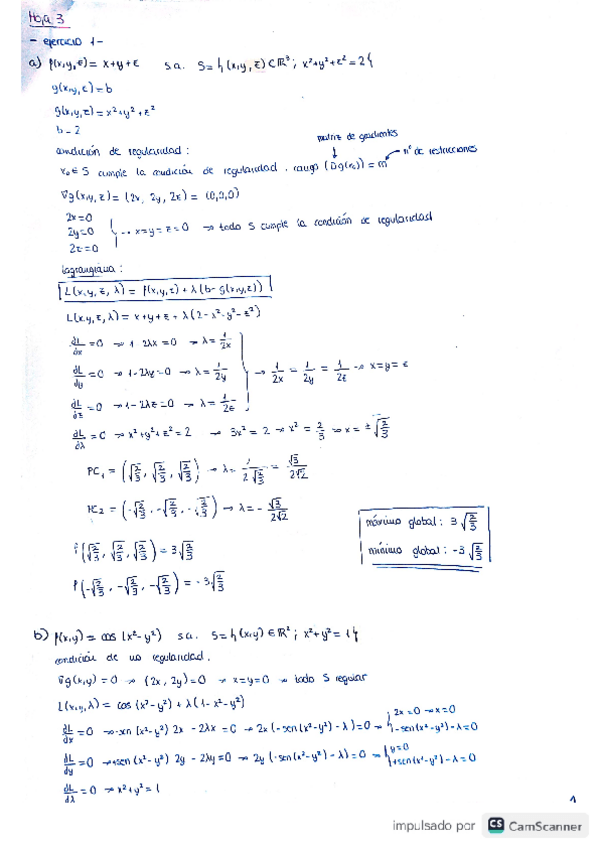 Hoja 3
- ejercicio 1 -
a) f(x,y,z) = x+y+z s.a. S = { (x,y,z) ⊂ ℝ³ ; x²+y²+z² = 2 {
g(x,y,z) = b
g(x,y,z) = x²+y²+z²
b = 2
matriz de gradientes
condición de regularidad:
x₀ ∈ S cumple la condición de regularidad . rango (Dg(x₀)) = m nº de restricciones
∇g(x,y,z) = (2x, 2y, 2z) = (0,0,0)
2x=0
2y=0 x=y=z=0 → todo S cumple la condición de regularidad
2z=0
lagrangiana:
L(x,y,z,λ) = f(x,y,z) + λ(b-g(x,y,z))
L(x,y,z,λ) = x+y+z+λ(2-x²-y²-z²)
dL/dx = 0 → 1-2λx = 0 → λ = 1/2x
dL/dy = 0 → 1-2λy = 0 → λ = 1/2y → 1/2x = 1/2y = 1/2z → x=y=z
dL/dz = 0 → 1-2λz = 0 → λ = 1/2z
dL/dλ = 0 → x²+y²+z² = 2 → 3x² = 2 → x² = 2/3 → x = ±√2/3
PC₁ = (√2/3, √2/3, √2/3) → λ = 1/2√2/3 = √3/2√2
PC₂ = (-√2/3, -√2/3, -√2/3) → λ = - √3/2√2
máximo global: 3√2/3
f(√2/3, √2/3, √2/3) = 3√2/3
mínimo global: -3√2/3
f(-√2/3, -√2/3, -√2/3) = -3√2/3
b) f(x,y) = cos (x²-y²) s.a. S = { (x,y) ∈ ℝ² ; x²+y² = 1 {
condición de no regularidad.
∇g(x,y) = 0 → (2x, 2y) = 0 → x=y=0 → todo S regular
L(x,y,λ) = cos (x²-y²) + λ(1-x²-y²)
dL/dx = 0 → -sen (x²-y²) 2x - 2λx = 0 → 2x (-sen(x²-y²) - λ) = 0 → { 2x = 0 → x=0
-sen(x²-y²)-λ=0
dL/dy = 0 → +sen (x²-y²) 2y - 2λy = 0 → 2y (-sen(x²-y²) - λ) = 0 → { y=0
+sen(x²-y²)-λ=0
dL/dλ = 0 → x²+y² = 1
1
impulsado por CS CamScanner